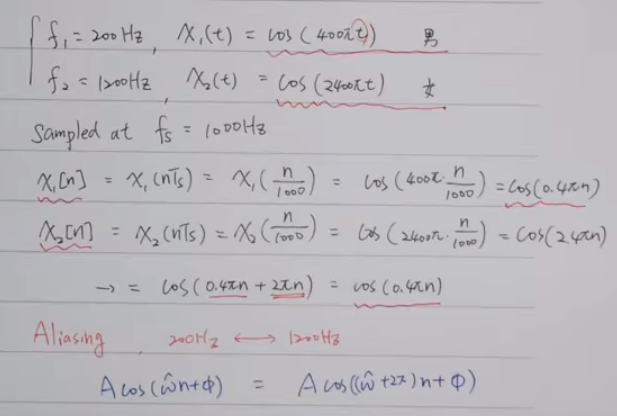 f₁ = 200Hz, X₁(t) = cos(400πt) 男
f₂ = 1200Hz, X₂(t) = cos(2400πt) 女
Sampled at fs = 1000Hz
X₁[n] = X₁(nTs) = X₁(n/1000) = cos(400π·n/1000) = cos(0.4πn)
X₂[n] = X₂(nTs) = X₂(n/1000) = cos(2400π·n/1000) = cos(2.4πn)
→ = cos(0.4πn + 2πn) = cos(0.4πn)
Aliasing, 200Hz ↔ 1200Hz
A cos(ω̂n+ϕ) = A cos((ω̂+2π)n + ϕ)